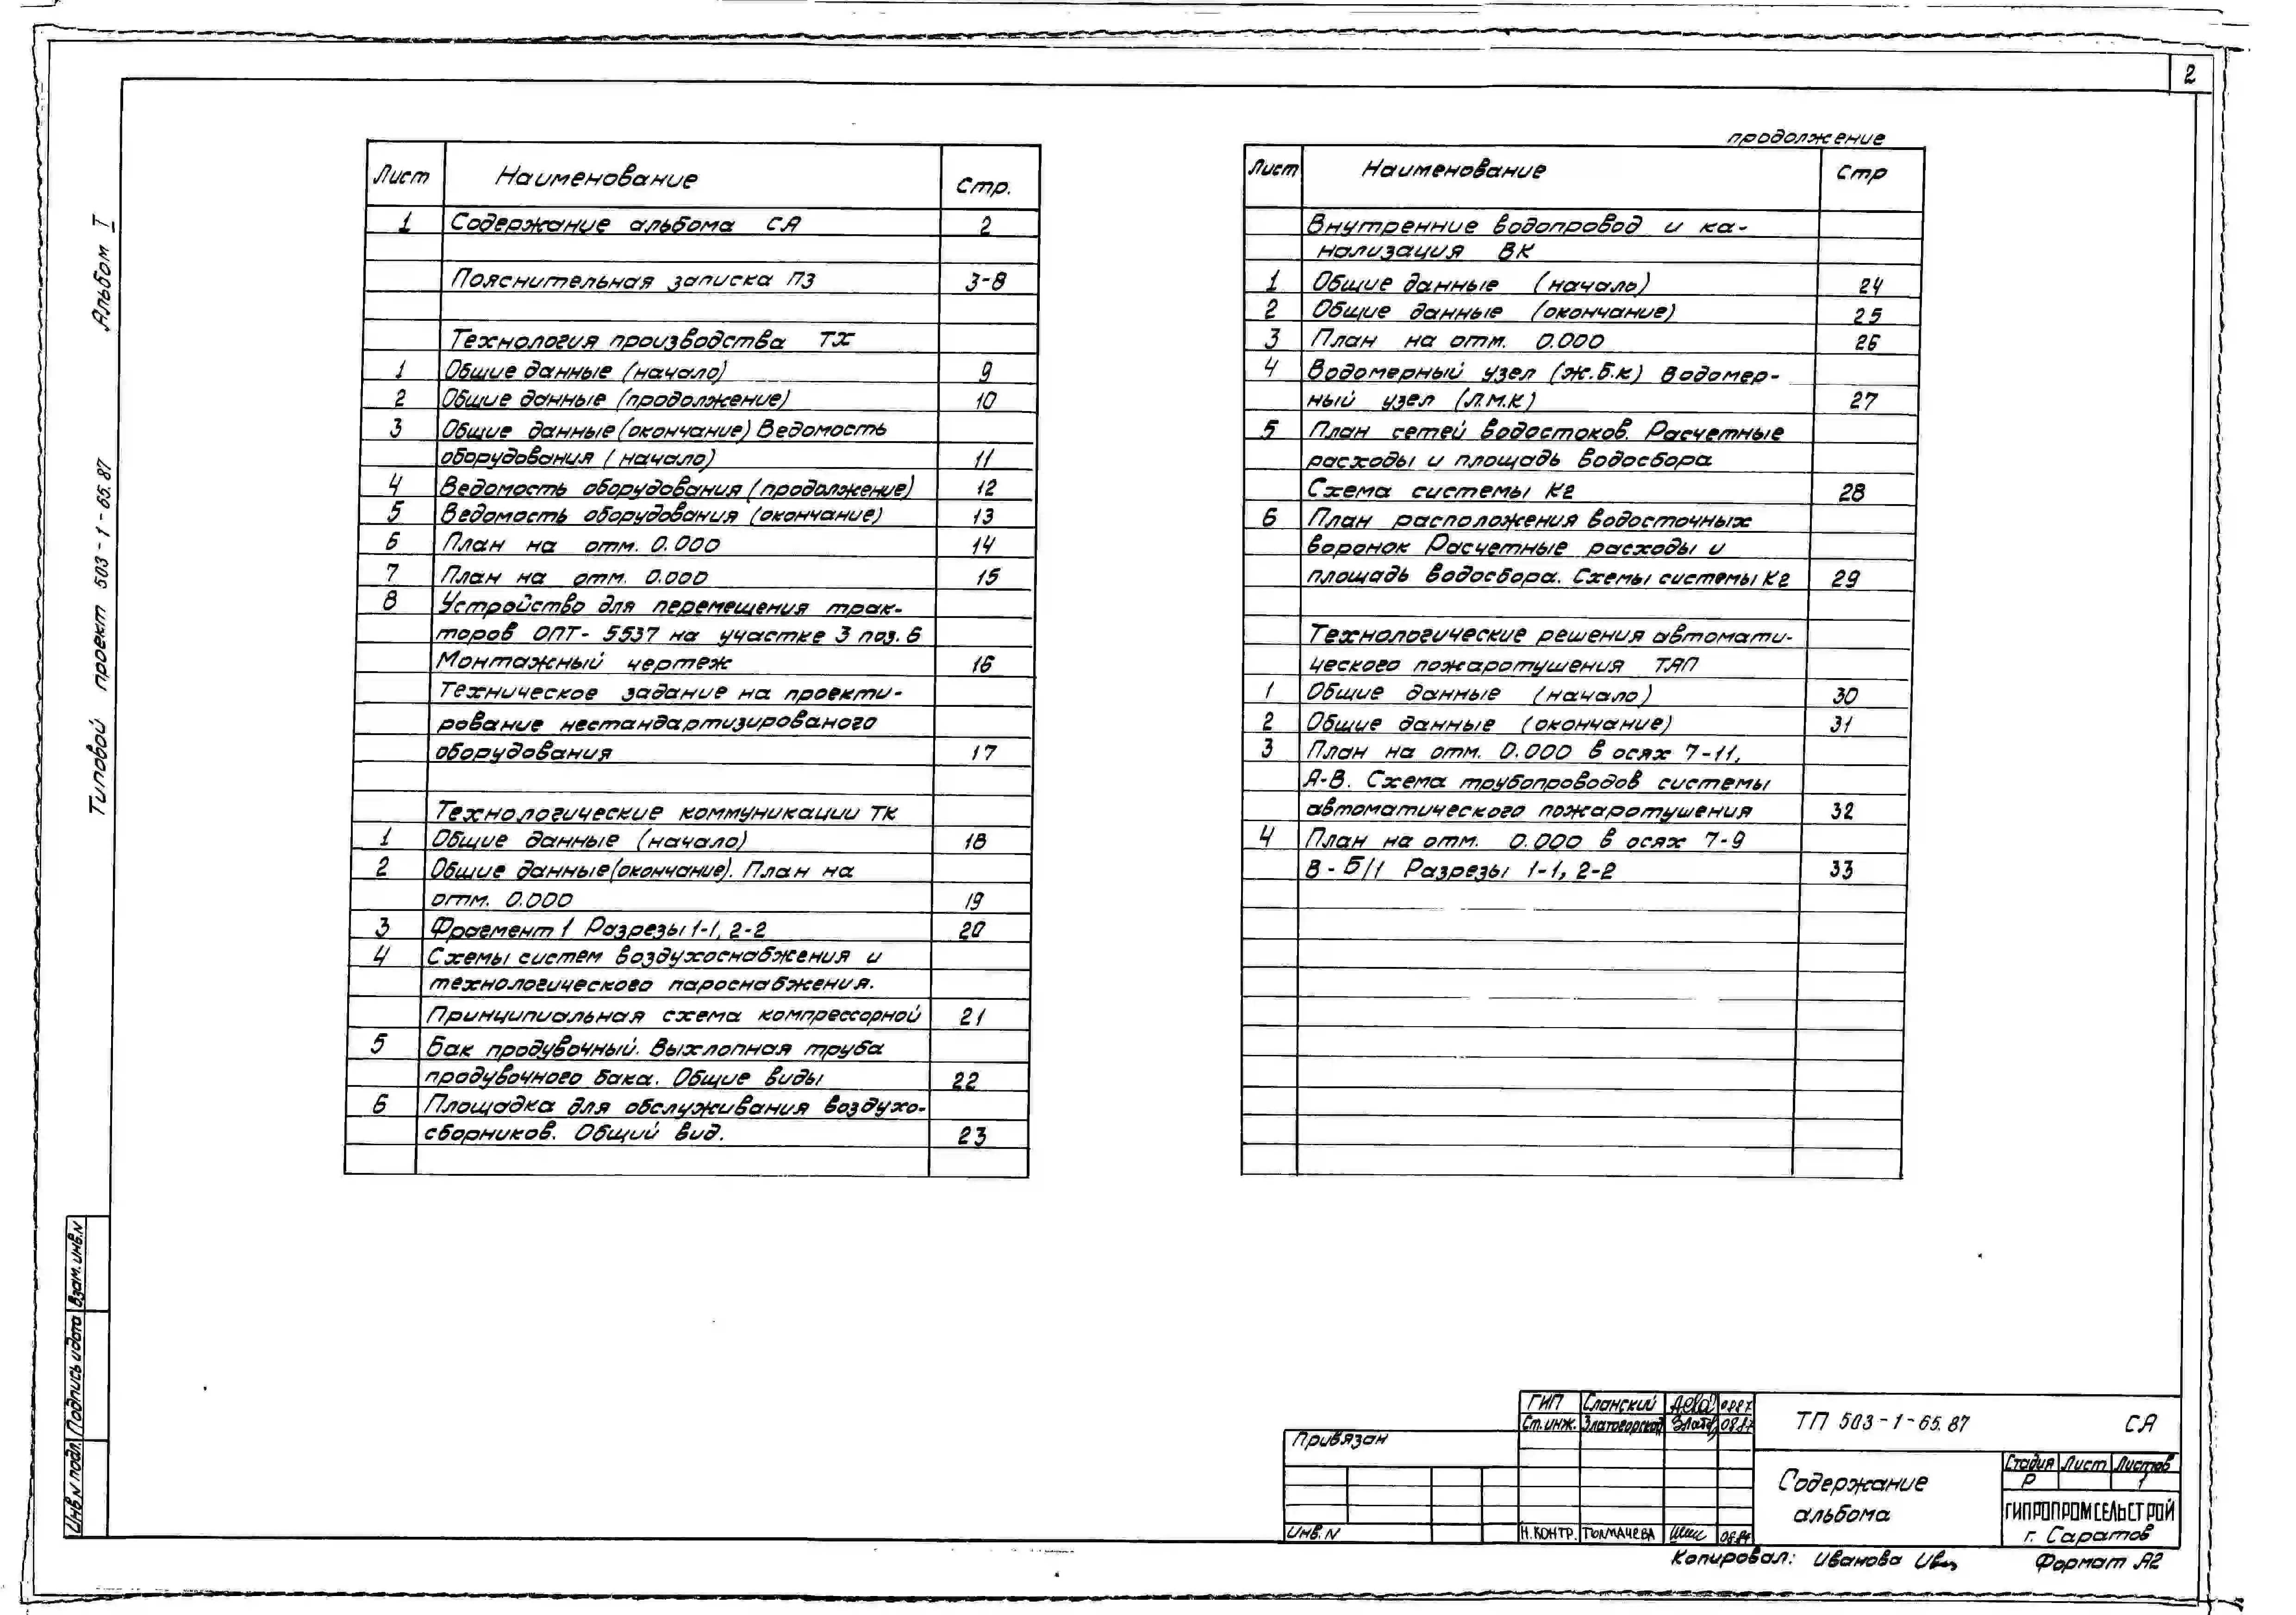 2
Альбом I
Типовой проект 503-1-65.87
Лист Наименование Стр.
1 Содержание альбома СА 2
Пояснительная записка ПЗ 3-8
Технология производства ТХ
1 Общие данные (начало) 9
2 Общие данные (продолжение) 10
3 Общие данные (окончание) Ведомость
оборудования (начало) 11
4 Ведомость оборудования (продолжение) 12
5 Ведомость оборудования (окончание) 13
6 План на отм. 0.000 14
7 План на отм. 0.000 15
8 Устройство для перемещения трак-
торов ОПТ-5537 на участке 3 поз. 6
Монтажный чертеж 16
Техническое задание на проекти-
рование нестандартизированого
оборудования 17
Технологические коммуникации ТК
1 Общие данные (начало) 18
2 Общие данные (окончание). План на
отм. 0.000 19
3 Фрагмент 1 Разрезы 1-1, 2-2 20
4 Схемы систем воздухоснабжения и
технологического пароснабжения.
Принципиальная схема компрессорной 21
5 Бак продувочный. Выхлопная труба
продувочного бака. Общие виды 22
6 Площадка для обслуживания воздухо-
сборников. Общий вид. 23
продолжение
Лист Наименование Стр
Внутренние водопровод и ка-
нализация ВК
1 Общие данные (начало) 24
2 Общие данные (окончание) 25
3 План на отм. 0.000 26
4 Водомерный узел (ж.б.к) Водомер-
ный узел (л.м.к) 27
5 План сетей водостоков. Расчетные
расходы и площадь водосбора
Схема системы К2 28
6 План расположения водосточных
воронок Расчетные расходы и
площадь водосбора. Схемы системы К2 29
Технологические решения автомати-
ческого пожаротушения ТАП
1 Общие данные (начало) 30
2 Общие данные (окончание) 31
3 План на отм. 0.000 в осях 7-11,
А-В. Схема трубопроводов системы
автоматического пожаротушения 32
4 План на отм. 0.000 в осях 7-9
В-Б/1 Разрезы 1-1, 2-2 33
Взам. инв. N
Подпись и дата
Инв N подл.
Привязан
Инв. N
ГИП Сланский 08.87
Ст. инж. Златогорская Злато 08.87
Н. контр. Толмачева
ТП 503-1-65.87 СА
Содержание
альбома
Стадия Лист Листов
Р 1
ГИПРОПРОМСЕЛЬСТРОЙ
г. Саратов
Копировал: Иванова
Формат А2